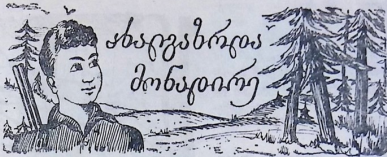 ახალგაზრდა
მონადირე